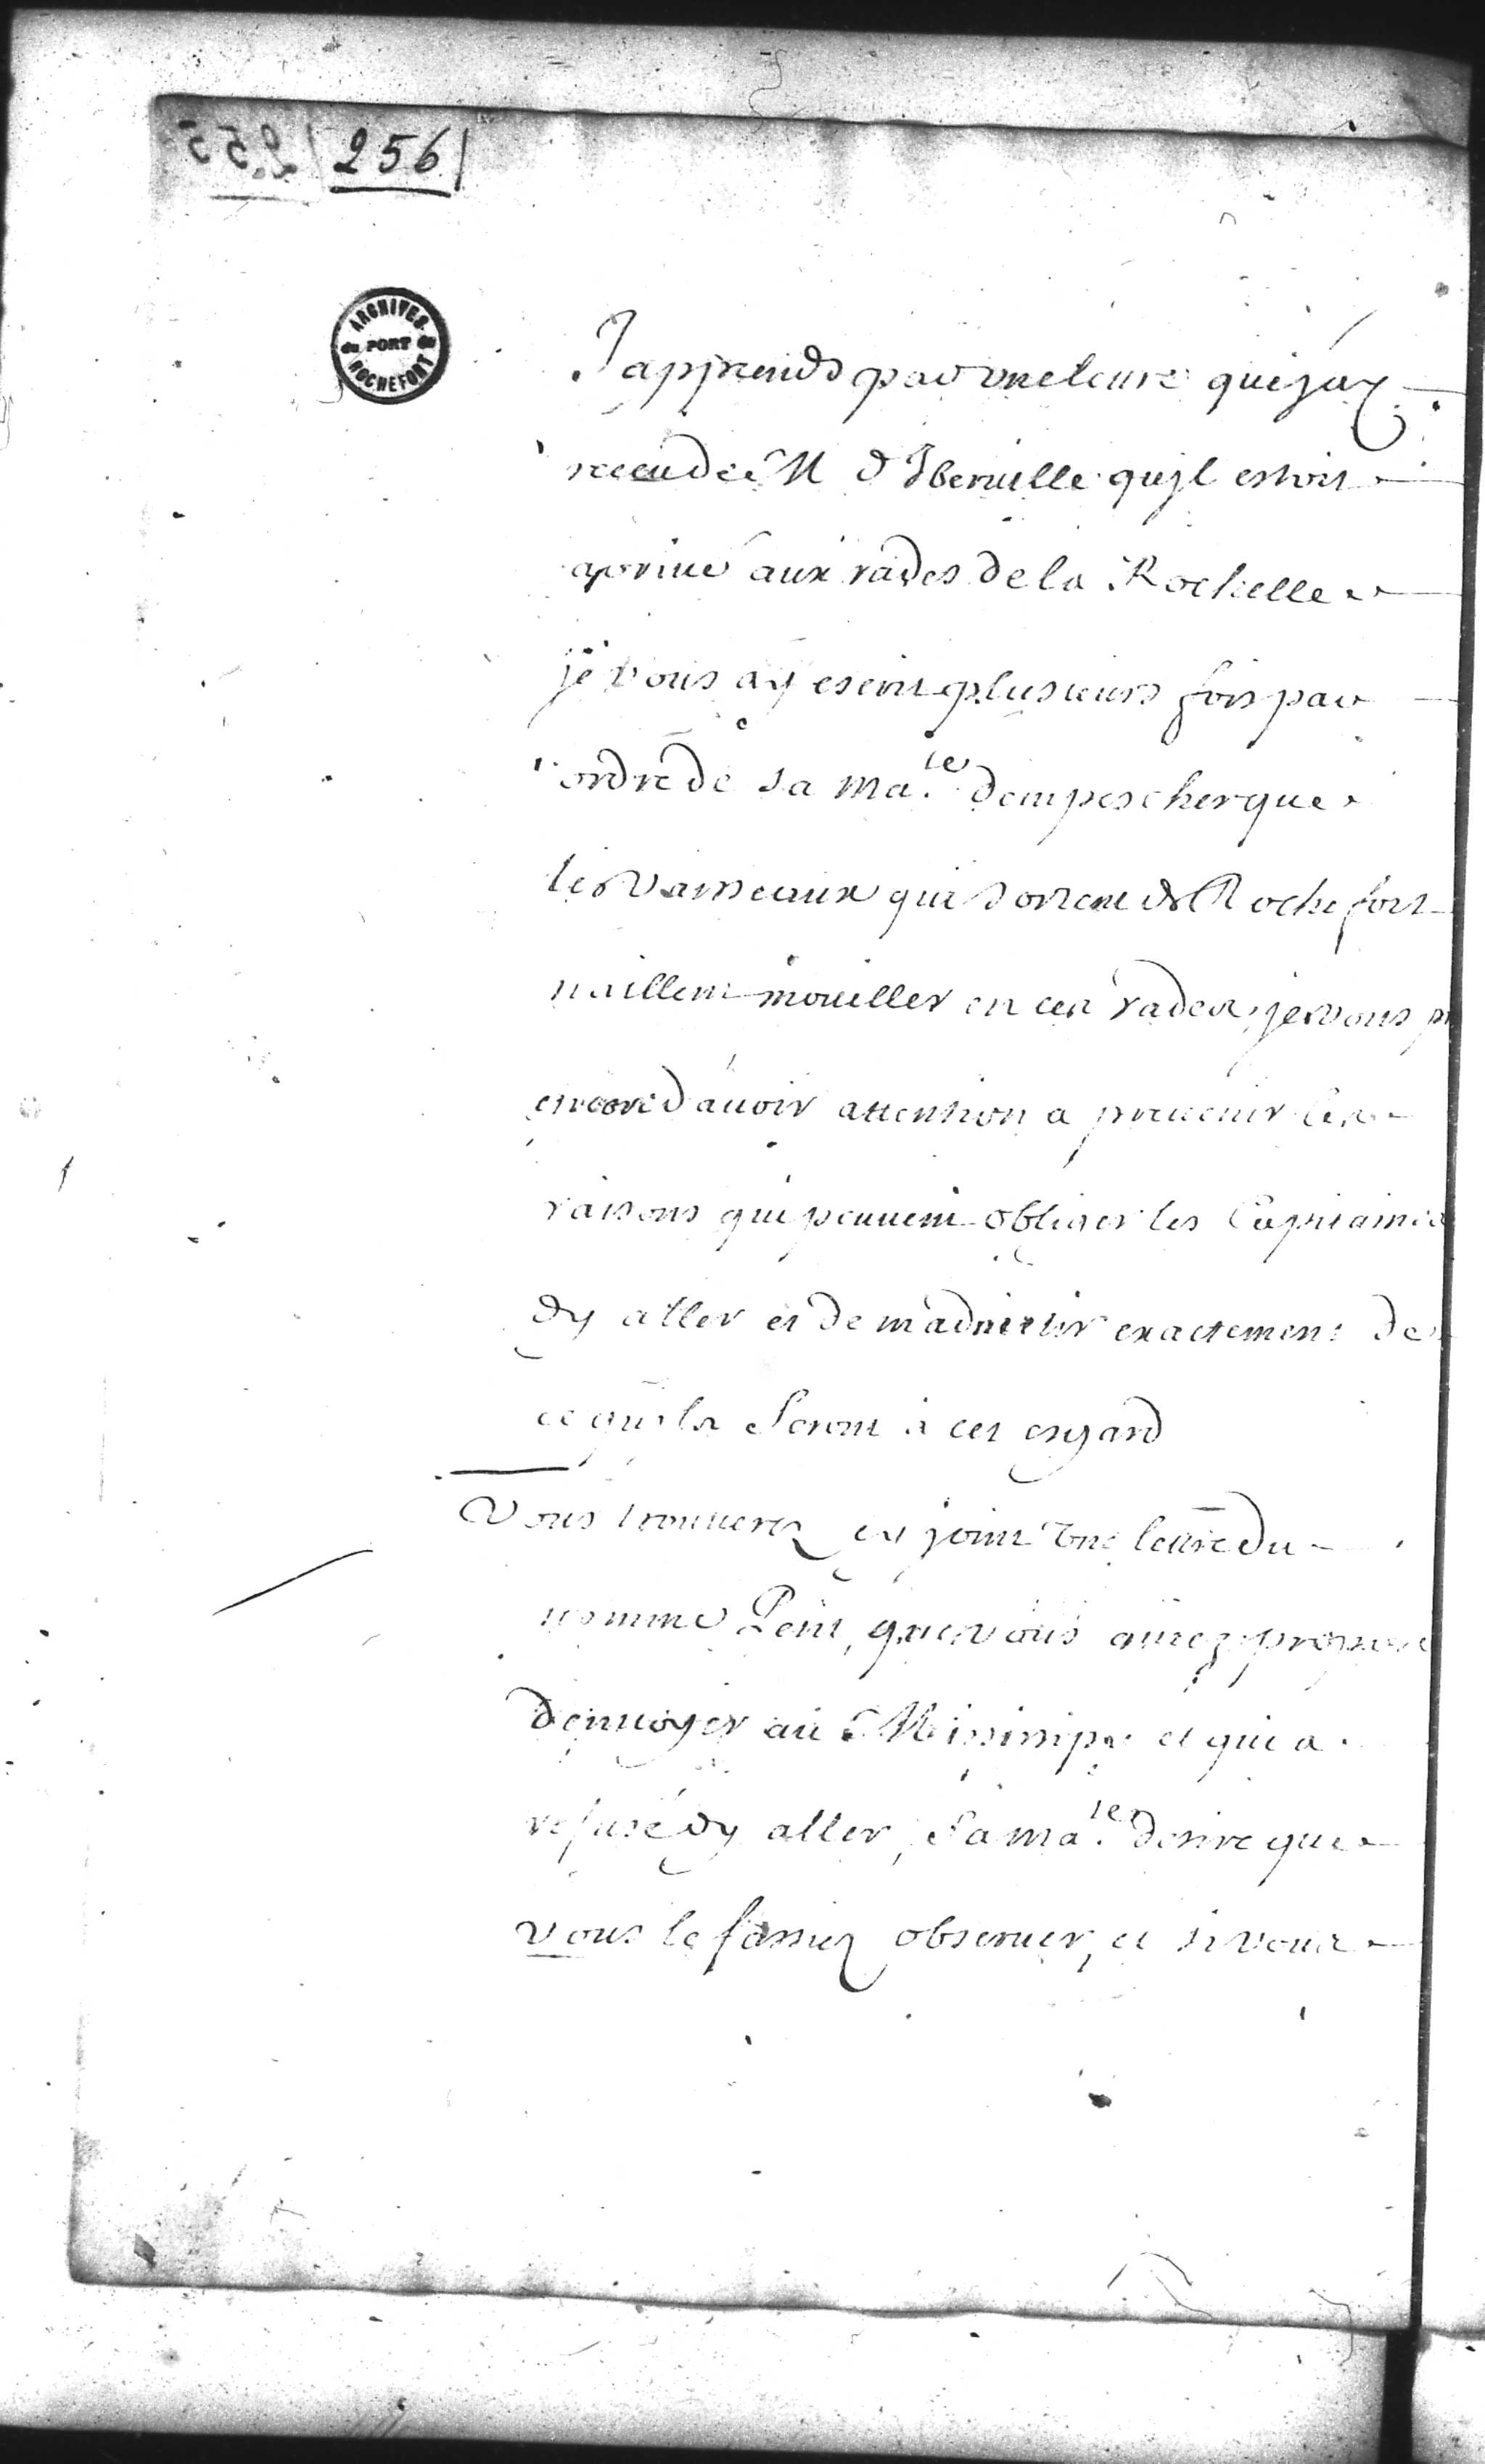 256
ARCHIVES
du PORT de
ROCHEFORT
J'apprends par une lettre que j'ay
receu de M d'Iberuille qu'jl estoit
arriué aux rades de la Rochelle
je vous ay escrit plusieurs fois par
ordre de sa Ma.té dempescher que
les vaisseaux qui sortent de Rochefort
naillent mouiller en ces rades, je vous
encore dauoir attention a preuenir les
raisons qui peuuent obliger les Capitaines
dy aller et de maduertir exactement de
ce quils feront a cet esgard
Vous trouuerez cy joint une lettre du
nommé Petit, que vous auiez proposé
denuoyer au Missisipy et qui a
refusé dy aller, sa Ma.té desire que
vous le fassiez obseruer, et si vous